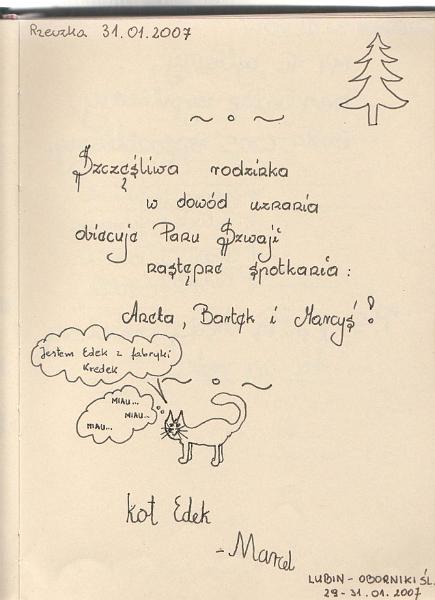 Rzeczka 31.01.2007
~ o ~
Szczęśliwa rodzinka
w dowód uznania
obiecuje Panu Szwaji
następne spotkania:
Aneta, Bartek i Marcyś!
~ o ~
Jestem Edek z fabryki
Kredek
MIAU...
MIAU...
MIAU...
kot Edek
- Marcel
LUBIN - OBORNIKI ŚL.
29-31.01.2007